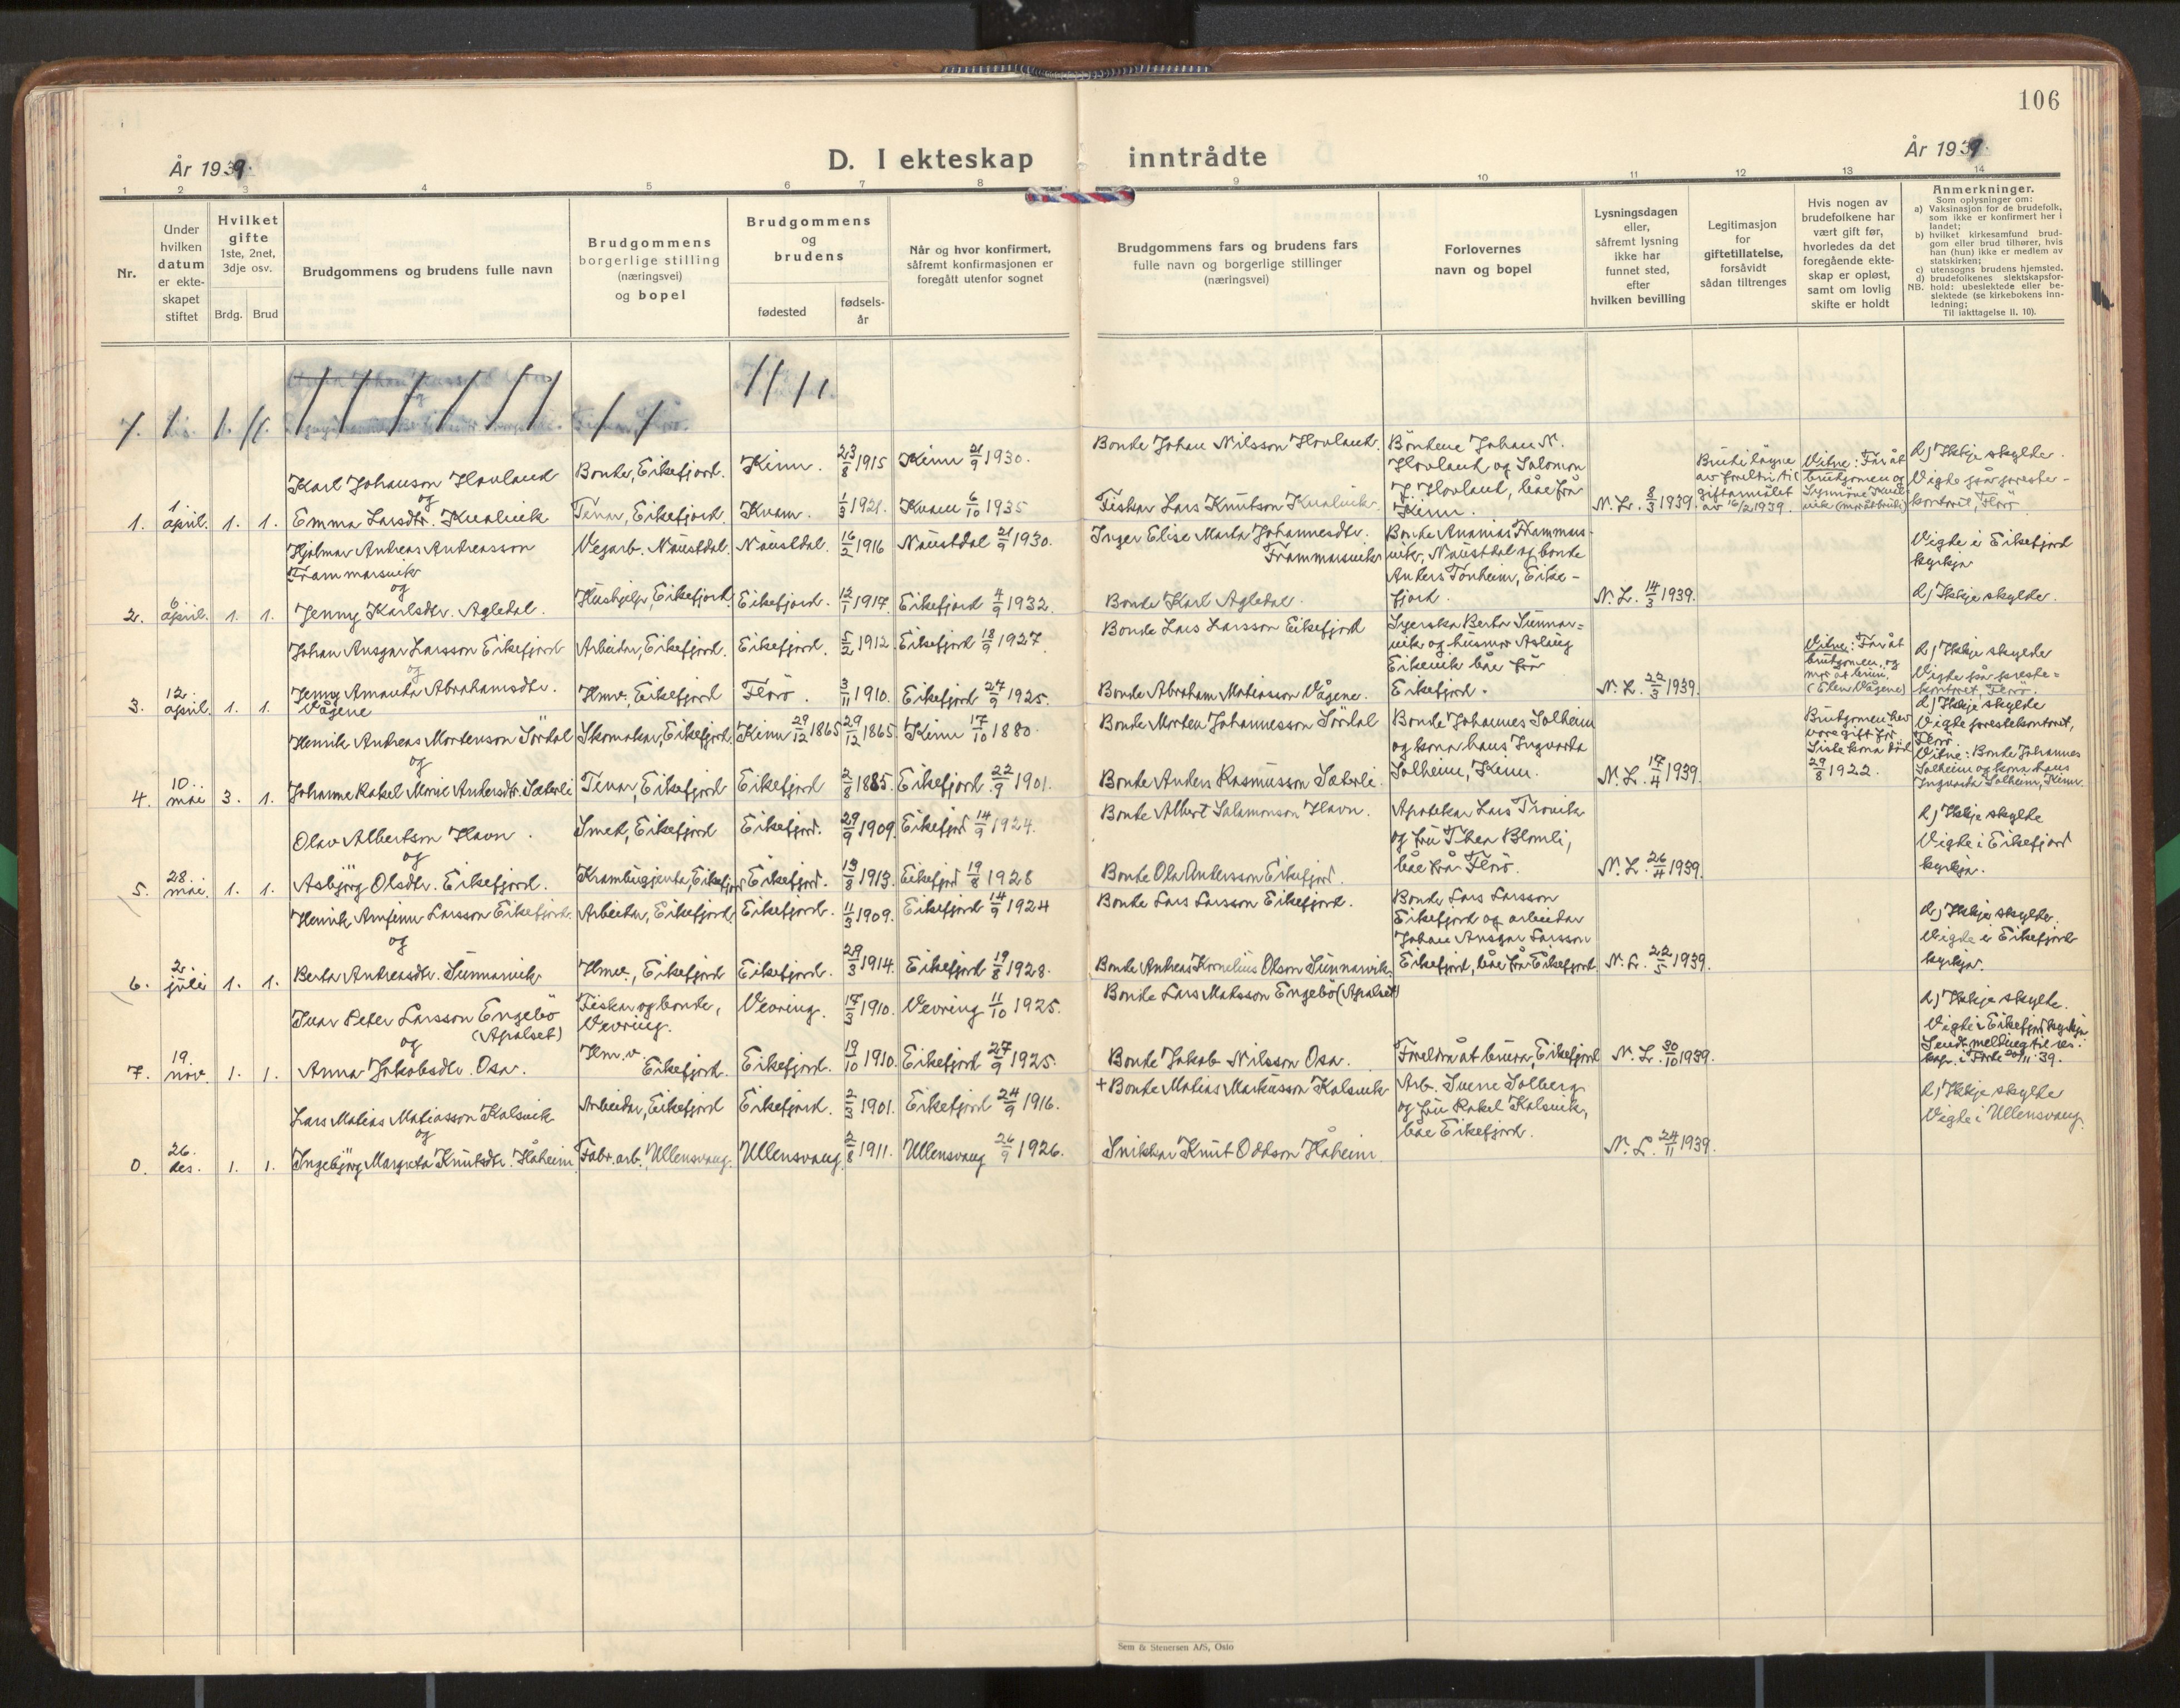 106
År 1939.
D. I ekteskap inntrådte
År 1939.
1 2 3 4 5 6 7 8 9 10 11 12 13 14
Nr.
Under
hvilken
datum
er ekte-
skapet
stiftet
Hvilket
gifte
1ste, 2net,
3dje osv.
Brdg. Brud
Brudgommens og brudens fulle navn
Brudgommens
borgerlige stilling
(næringsvei)
og bopel
Brudgommens
og
brudens
fødested
fødsels-
år
Når og hvor konfirmert,
såfremt konfirmasjonen er
foregått utenfor sognet
Brudgommens fars og brudens fars
fulle navn og borgerlige stillinger
(næringsvei)
Forlovernes
navn og bopel
Lysningsdagen
eller,
såfremt lysning
ikke har
funnet sted,
efter
hvilken bevilling
Legitimasjon
for
giftetillatelse,
forsåvidt
sådan tiltrenges
Hvis nogen av
brudefolkene har
vært gift før,
hvorledes da det
foregående ekte-
skap er opløst,
samt om lovlig
skifte er holdt
Anmerkninger.
Som oplysninger om:
a) Vaksinasjon for de brudefolk,
som ikke er konfirmert her i
landet;
b) hvilket kirkesamfund brud-
gom eller brud tilhører, hvis
han (hun) ikke er medlem av
statskirken;
c) utensogns brudens hjemsted.
d) brudefolkenes slektskapsfor-
NB. hold: ubeslektede eller be-
slektede (se kirkebokens inn-
ledning;
Til iakttagelse II. 10).
1. 1. april. 1. 1.
Karl Johanson Hovland
og
Emma Larsdtr. Kvalvik
Bonde, Eikefjord. Kinn. 23/8 1915 Kinn 21/9 1930.
Tenar, Eikefjord. Kvam. 1/3 1921. Kvam 6/10 1935
Bonde Johan Nilsson Hovland.
Fiskar Lars Knutson Kvalvik
Böndene Johan N.
Hovland og Salomon
J. Hovland, båe frå
Kinn.
N. L. 8/3 1939.
Brudi løyve
av foreldri til
giftarmålet
av 16/2 1939.
Vitne: Far åt
brudgomen og
d) Ikkje skylde.
Vigde på preste-
kontoret, Florö.
2. 6. april. 1. 1.
Hjalmar Andreas Andreasson
Frammarsvik
og
Jenny Karlsdtr. Agledal.
Vegarb. Naustdal. Naustdal. 16/2 1916 Naustdal 21/9 1930.
Hushjelp, Eikefjord. Eikefjord. 12/1 1917. Eikefjord 4/9 1932.
Inger Elise Marta Johannesdtr.
Frammarsvik
Bonde Karl Agledal.
Bonde Ananias Frammars-
vik, Naustdal og bonde
Anders Tonheim, Eike-
fjord.
N. L. 14/3 1939.
Vigde i Eikefjord
kyrkja
d) Ikkje skylde.
3. 12. april. 1. 1.
Johan Ansgar Larsson Eikefjord
og
Jenny Amanda Abrahamsdtr.
Vågene
Arbeidar, Eikefjord. Eikefjord. 5/2 1912 Eikefjord 18/9 1927.
Hmv. Eikefjord Florö. 3/11 1910. Eikefjord 27/9 1925.
Bonde Lars Larsson Eikefjord
Bonde Abraham Matiasson Vågene.
Syerska Berta Sunnar-
vik og husmor Aslaug
Eikevik båe frå
Eikefjord.
N. L. 22/3 1939.
Vitne: Far åt
brudgomen, og
mor åt brura.
(Elen Vågene)
d) Ikkje skylde
Vigde på preste-
kontoret, Florö.
4. 10. mai 3. 1.
Henrik Andreas Mortenson Sördal
og
Johanne Rakel Marie Andersdtr. Sæterli
Skomakar, Eikefjord. Kinn 29/12 1865 29/12 1865. Kinn 17/10 1880.
Tenar, Eikefjord Eikefjord 2/8 1885. Eikefjord 22/9 1901.
Bonde Morten Johannesson Sördal
Bonde Anders Rasmusson Sæterli
Bonde Johannes Solheim
og kona hans Ingvarda
Solheim, Kinn.
N. L. 17/4 1939.
Brudgomen hev
vore gift för.
Siste kona död
29/8 1922.
d) Ikkje skylde
Vigde prestekontoret,
Florö.
Vitne: Bonde Johannes
Solheim og kona hans
Ingvarda Solheim, Kinn.
5. 28. mai. 1. 1.
Olav Albertson Havn.
og
Asbjörg Olsdtr. Eikefjord.
Smed, Eikefjord Eikefjord. 29/9 1909. Eikefjord 14/9 1924.
Krambugjenta, Eikefjord Eikefjord. 13/8 1913. Eikefjord 19/8 1928
Bonde Albert Salamonson Havn.
Bonde Ola Andersson Eikefjord.
Apotekar Lars Tronvik
og fru Thea Blomli,
båe frå Florö.
N. L. 26/4 1939.
d) Ikkje skylde
Vigde i Eikefjord
kyrkja.
6. 2. juli 1. 1.
Henrik Arnfinn Larsson Eikefjord.
og
Berta Andreasdtr. Sunnarvik
Arbeidar, Eikefjord. Eikefjord. 11/3 1909. Eikefjord 14/9 1924
Hmv., Eikefjord Eikefjord. 29/3 1914. Eikefjord 19/8 1928.
Bonde Lars Larsson Eikefjord.
Bonde Andreas Kornelius Olson Sunnarvik.
Bonde Lars Larsson
Eikefjord og arbeidar
Johan Ansgar Larsson
Eikefjord, båe frå Eikefjord
N. L. 22/5 1939.
d) Ikkje skylde.
Vigde i Eikefjord
kyrkja.
7. 19. nov. 1. 1.
Ivar Peter Larsson Engebö
(Apalset)
og
Anna Jakobsdtr. Osa.
Fiskar og bonde,
Vevring. Vevring. 17/3 1910. Vevring 11/10 1925.
Hm.v.
Eikefjord. Eikefjord. 19/10 1910. Eikefjord 27/9 1925.
Bonde Lars Madsson Engebö (Apalset)
Bonde Jakob Nilsson Osa.
Foreldra åt brura, Eikefjord
N. L. 30/10 1939.
d) Ikkje skylde.
Vigde i Eikefjord kyrkja
Sendt melding til res.
kap. i Förde 20/11 39.
0. 26. des. 1. 1.
Lars Matias Matiasson Kalsvik
og
Ingebjörg Margreta Knutsdtr. Håheim
Arbeidar, Eikefjord Eikefjord. 2/3 1901. Eikefjord 24/9 1916.
Fabr. arb., Ullensvang. Ullensvang. 2/8 1911. Ullensvang 26/9 1926.
+ Bonde Matias Markusson Kalsvik
Snikkar Knut Oddson Håheim
Arb. Sverre Solberg
og fru Rakel Kalsvik,
båe Eikefjord.
N. L. 24/11 1939.
d) Ikkje skylde
Vigde i Ullensvang.
Sem & Stenersen A/S, Oslo